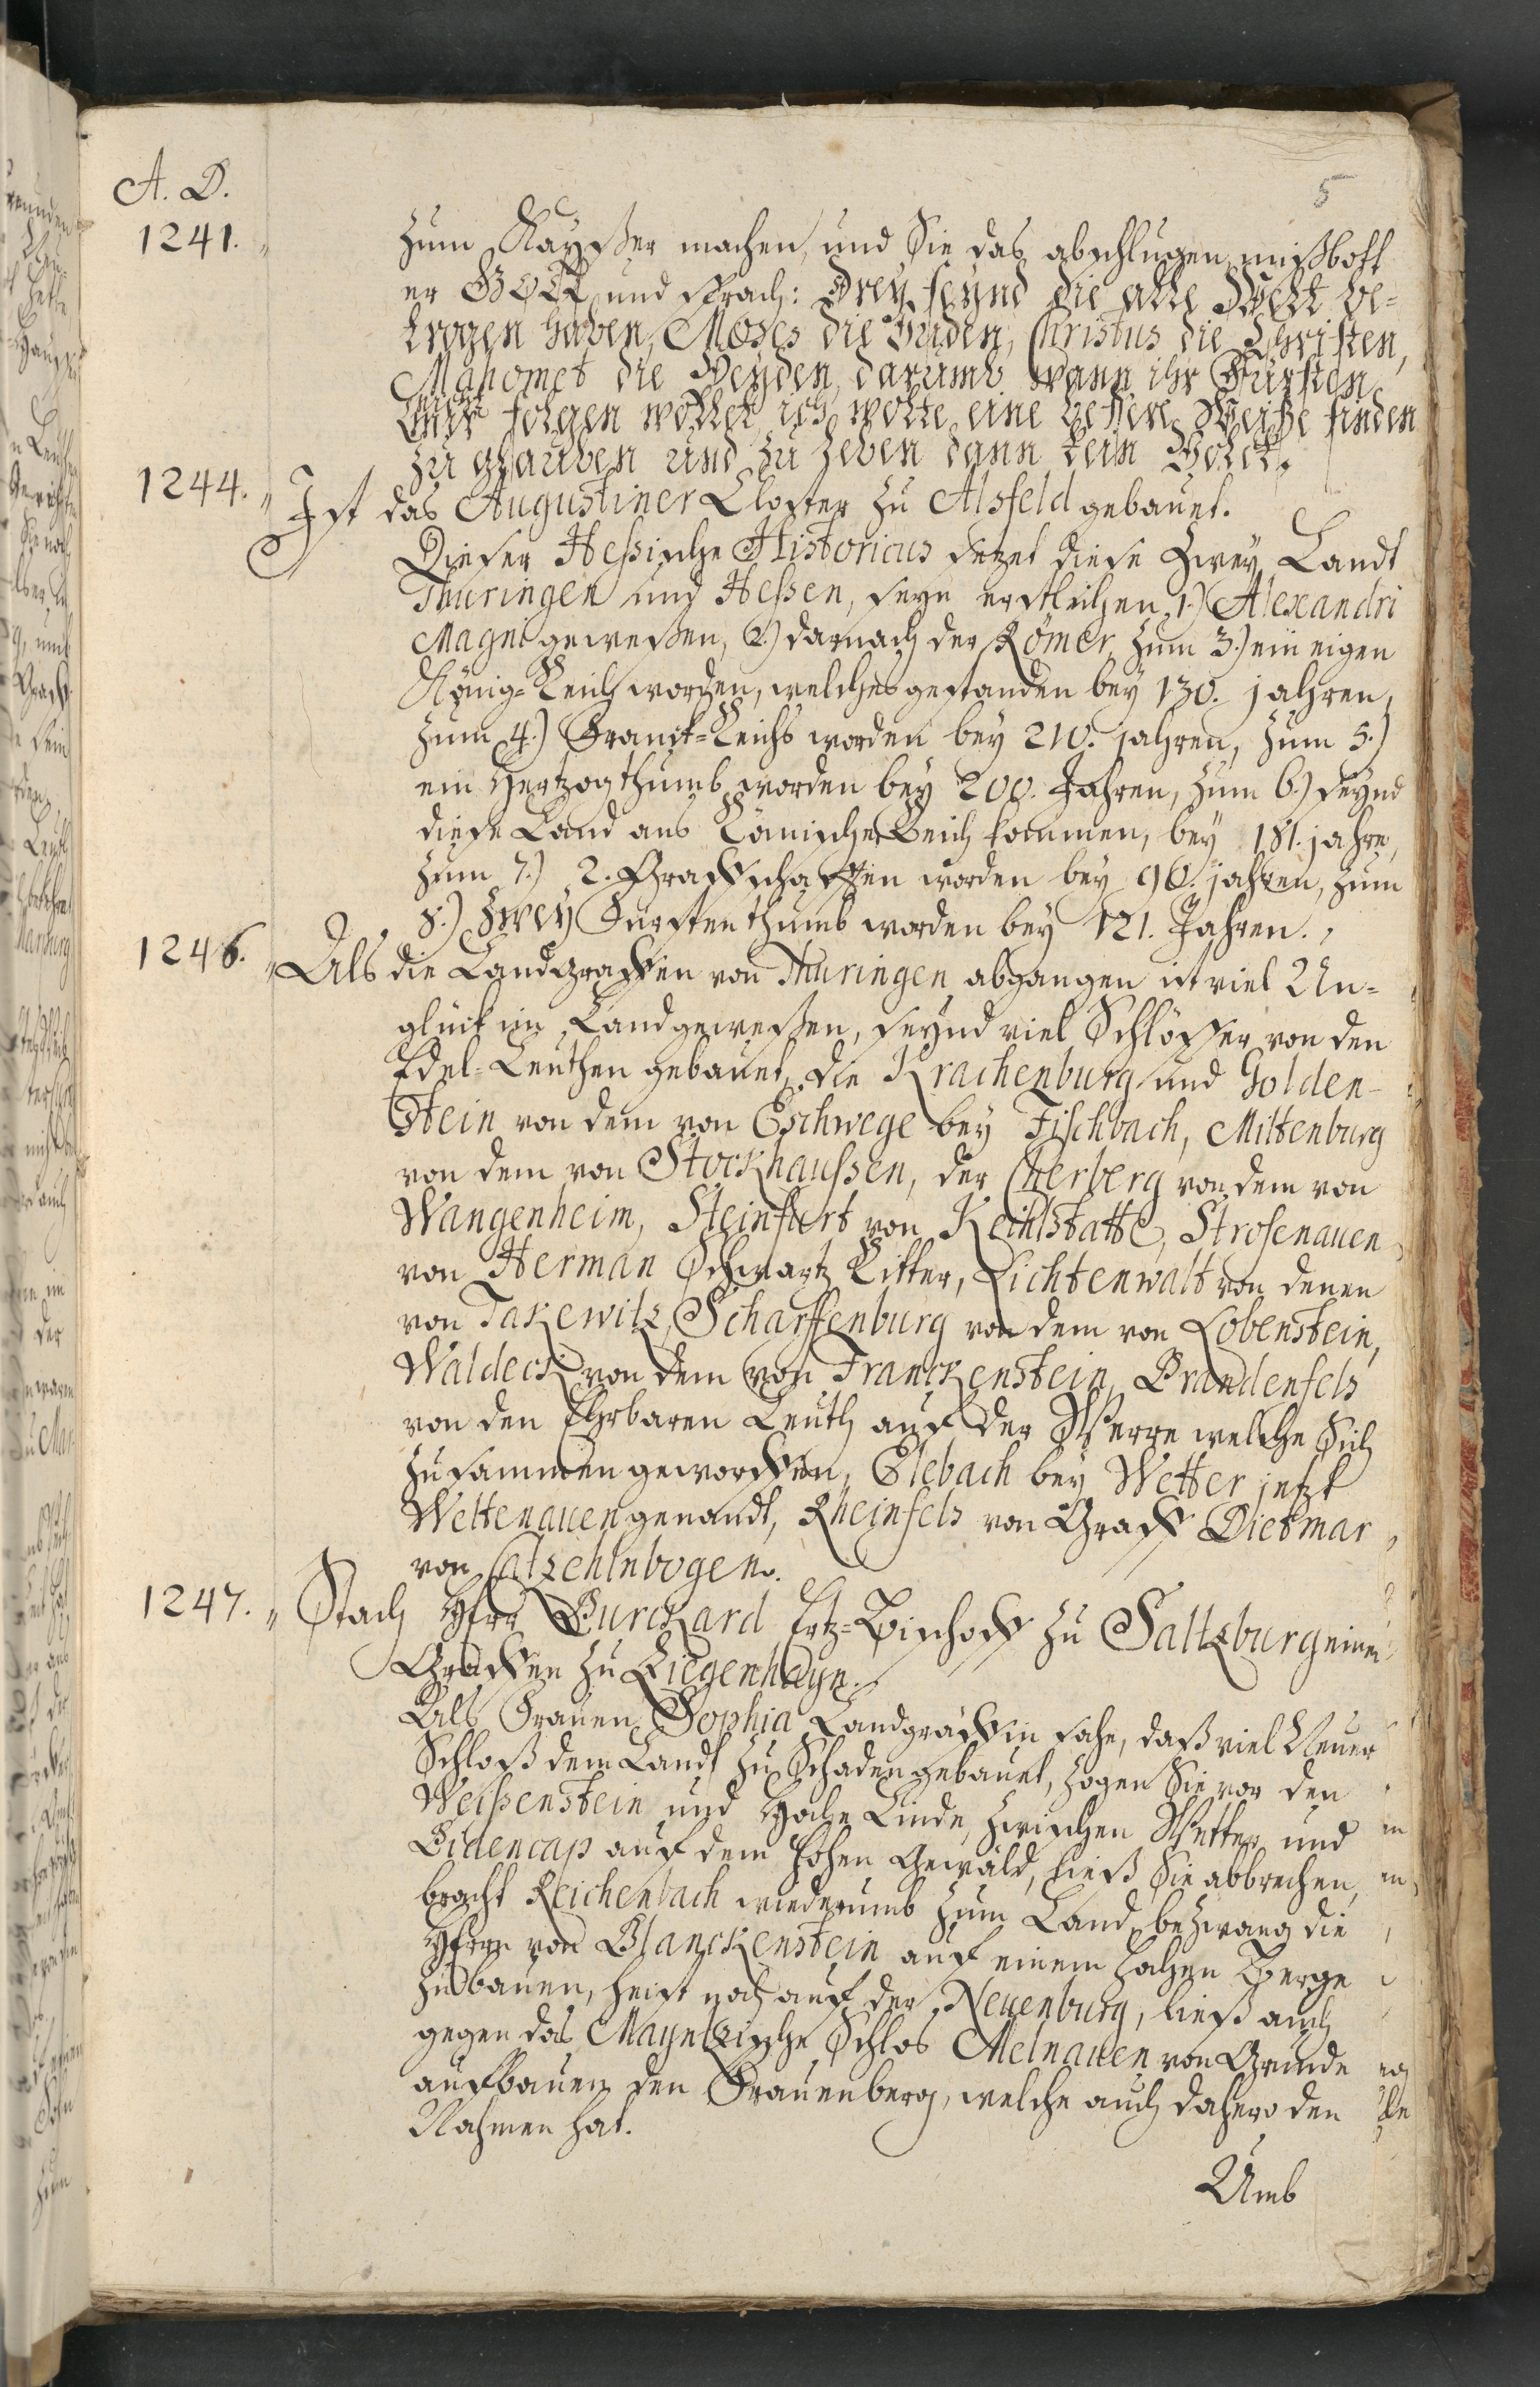 A. D.
5
1241. zum Kayßer machen, und Sie das abschlugen, mißbott
er GOTT, und sprach: Drey seynd die alle Welt be-
trogen haben, Moses die Juden, Christus die Christen,
Mahomet die Heyden, darumb wann ihr Fürsten
mir folgen wollet, ich wolte eine bessere Weiße finden
zu glauben und zu leben dann kein Volck.
1244. " Ist das Augustiner Closter zu Alsfeld gebauet.
Dieser Heßische Historicus setzet diese zwey Landt
Thüringen und Heßen, seyn erstlichen 1.) Alexandri
Magni geweßen, 2.) darnach der Römer, zum 3.) ein eigen
König-Reich worden, welches gestanden bey 130. jahren,
zum 4.) Franck-Reichs worden bey 210. jahren, zum 5.)
ein Hertzogthumb worden bey 200. Jahren, zum 6.) seynd
diese Land ans Römische Reich kommen, bey 181. jahre,
zum 7.) 2. Graffschafften worden bey 90. jahren, zum
8.) zwey Fürstenthumb worden bey 121. Jahren.
1246. " Als die Landgraffen von Thüringen abgangen ist viel Un-
glück im Land geweßen, seynd viel Schlösser von den
Edel-Leuthen gebauet, die Krachenburg und Golden-
Stein von dem von Eschwege bey Fischbach, Mittenburg
von dem von Stockhaußen, der Cherberg von dem von
Wangenheim, Steinfurt von Keihlstatt, Strosenauen
von Herman Schwartz Ritter, Lichtenwalt von denen
von Takewitz, Scharffenburg von dem von Lobenstein,
Waldeck von dem von Franckenstein, Brandenfels
von den Ehrbaren Leuth auf der Werre welche Sich
zusammen geworffen, Elebach bey Wetter jetzt
Wettenauen genandt, Rheinfels von Graff Dietmar
von Catzenlnbogen.
1247. " Stach Herr Burckard Ertz-Bischoff zu Saltzburg einen
Graffen zu Ziegenhayn.
Als Frauen Sophia Landgräffin sahe, daß viel Neuer
Schloß dem Landt zu Schaden gebauet, zogen Sie vor den
Weißenstein und Hohe Linde, zwischen Wetter und
Bidencap auf dem hohen Gewäld, ließ Sie abbrechen,
bracht Reichenbach wiederumb zum Land, bezwang die
Herrn von Blanckenstein auf einem hohen Berge
zu bauen, heist noch auf der Neuenburg, ließ auch
gegen das Mayntzische Schlos Melnauen von Grunde
aufbauen den Frauenberg, welche auch dahero den
Nahmen hat.
Umb